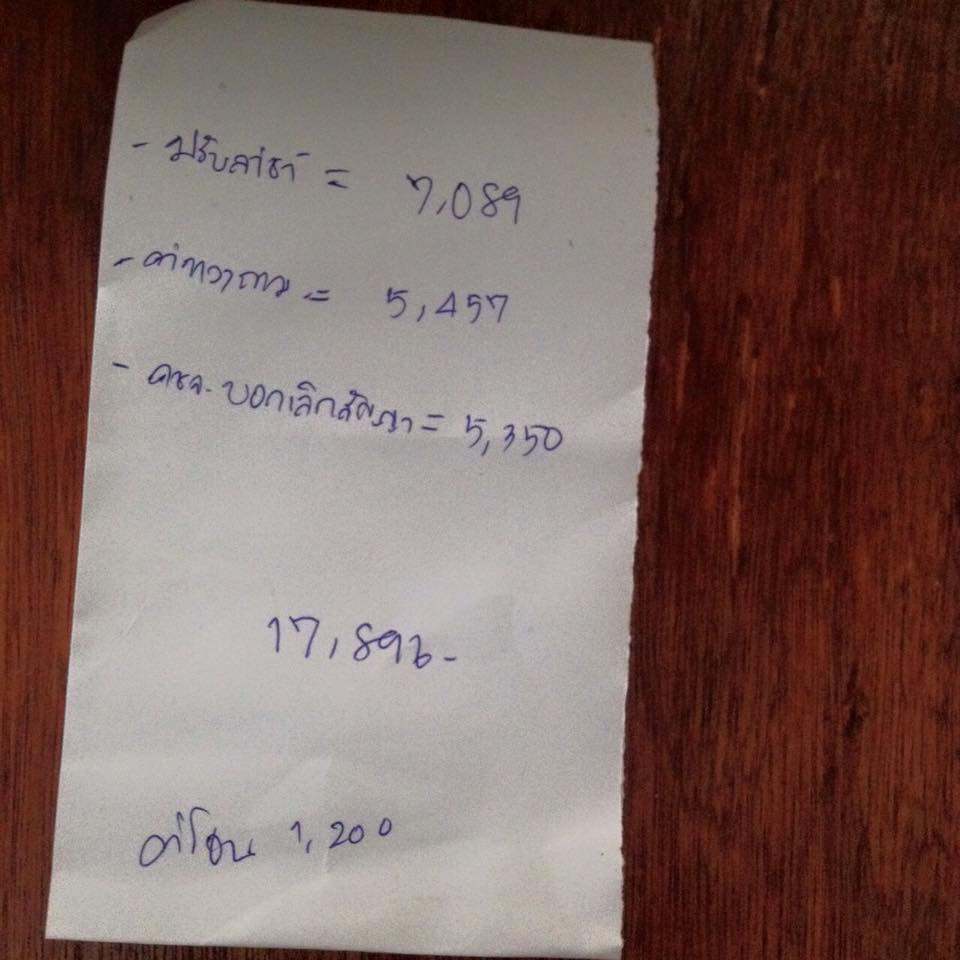 - ปรับล่าช้า = 7,089
- ค่าทวงถาม = 5,457
- คชจ. บอกเลิกสัญญา = 5,350
17,896-
ค่าโอน 1,200